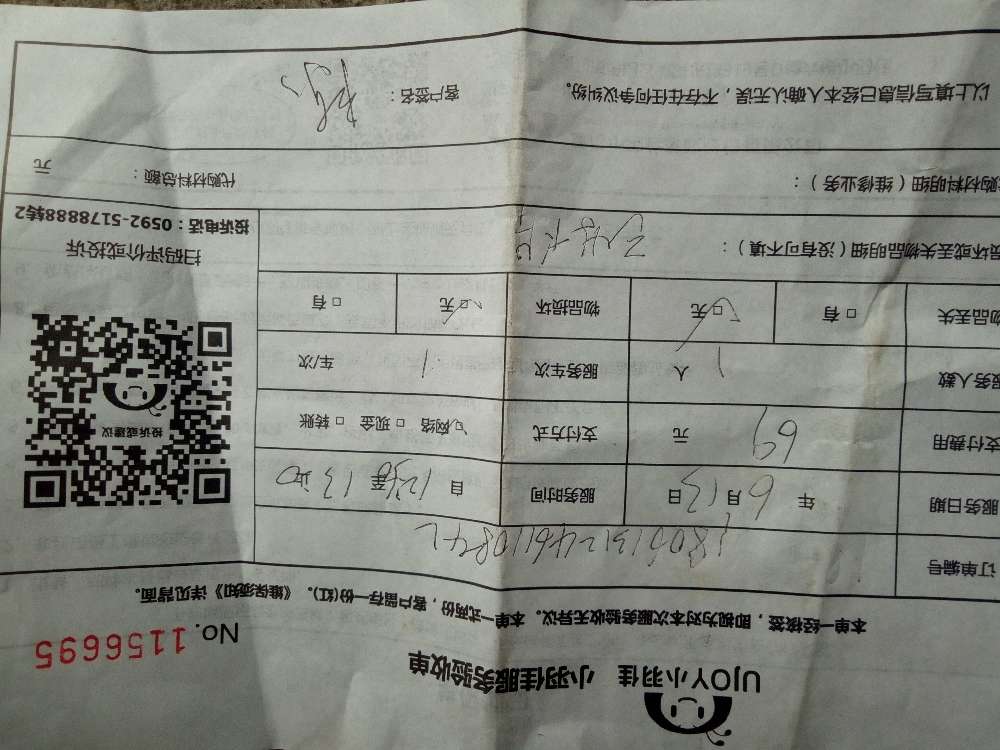 UJOY小羽佳 小羽佳服务验收单
No. 1156695
本单一经核签，即视为对本次服务验收无异议。本单一式两份，客户留存一份(红)。《维保须知》详见背面。
订单编号
服务日期 年 6月13日 服务时间 自 12:30 至 13:30
支付费用 69 元 支付方式 □网络 □现金 □转账
服务人数 1 人 服务车次 1 车/次
物品丢失 □有 □无 物品损坏 □无 □有
投诉或建议
损坏或丢失物品明细（没有可不填）：
扫码评价或投诉
投诉电话：0592-5178888转2
代购材料明细（维修业务）： 代购材料总额： 元
以上填写信息已经本人确认无误，不存在任何争议纠纷。 客户签名：